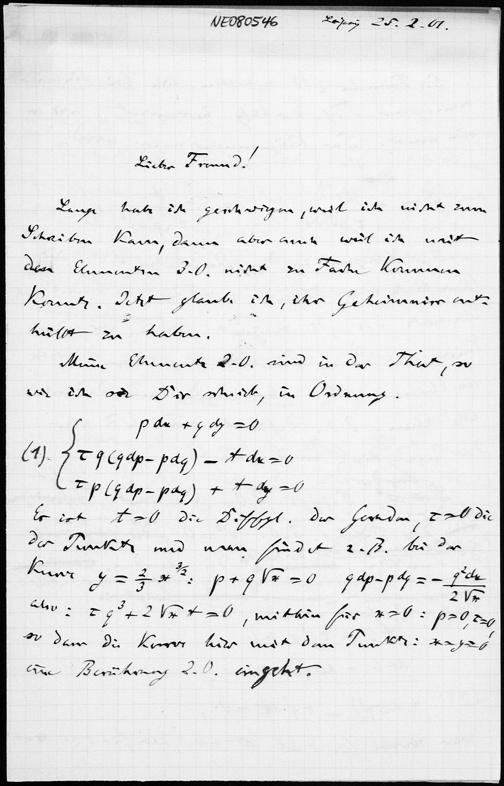 NE080546
Leipzig 25. 2. 01.
Lieber Freund!
Lange habe ich geschwiegen, weil ich nicht zum
Schreiben kam, dann aber auch weil ich mit
den Elementen 3.O. nicht zu Fache kommen
konnte. Jetzt glaube ich, ihr Geheimniss ent-
hüllt zu haben.
Meine Elemente 2.O. sind in der That, so
wie ich sie Dir schrieb, in Ordnung.
p dx + q dy = 0
(1). { τ q (q dp - p dq) - t dx = 0
τ p (q dp - p dq) + t dy = 0
Es ist t = 0 die Diffgl. der Geraden, τ = 0 die
der Punkte und man findet z.B. bei der
Kurve y = 2/3 x^{3/2}: p + q √x = 0 q dp - p dq = - q² dx / 2√x
also: τ q³ + 2 √x t = 0, mithin für x = 0: p = 0, τ = 0,
so dass die Kurve hier mit dem Punkte: x = y = 0
eine Berührung 2.O. eingeht.